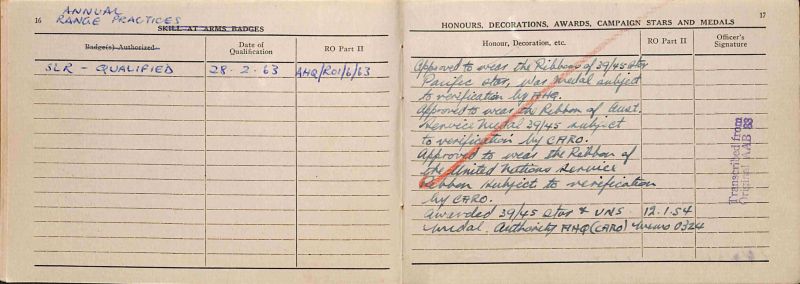 16
ANNUAL
RANGE PRACTICES
SKILL AT ARMS BADGES
Badge(s) Authorized
Date of Qualification
RO Part II
SLR - QUALIFIED
28-2-63
AHQ/RO1/6/63
17
HONOURS, DECORATIONS, AWARDS, CAMPAIGN STARS AND MEDALS
Honour, Decoration, etc.
RO Part II
Officer's Signature
Approved to wear the Ribbons of 39/45 Star
Pacific Star, War Medal subject
to verification by AHQ.
Approved to wear the Ribbon of Aust.
Service Medal 39/45 subject
to verification by CARO.
Approved to wear the Ribbon of
the United Nations Service
Ribbon subject to verification
by CARO.
Awarded 39/45 Star & UNS 12.1.54
Medal. Authority AHQ (CARO) Memo 0324
Transcribed from
Original AAB 83